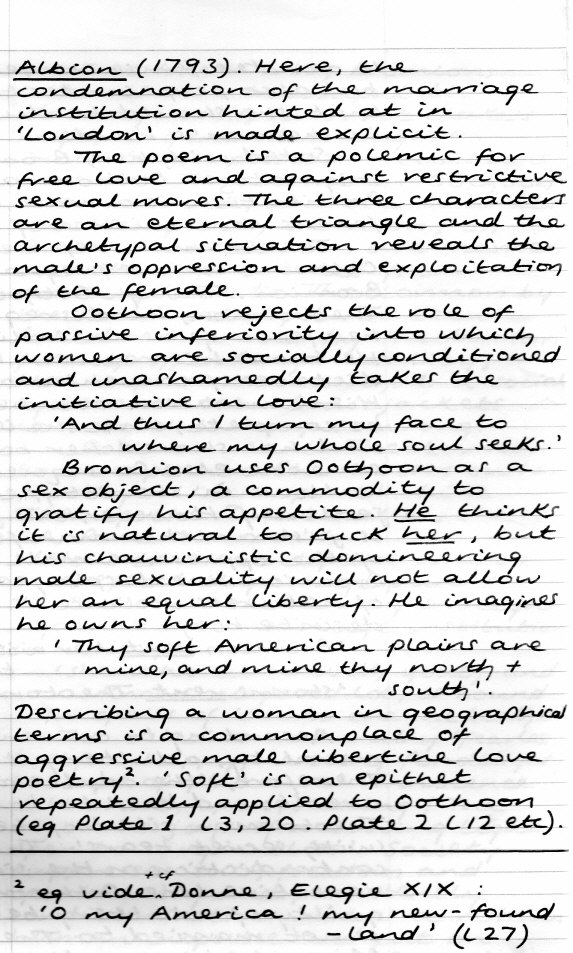 Albion (1793). Here, the
condemnation of the marriage
institution hinted at in
'London' is made explicit.
The poem is a polemic for
free love and against restrictive
sexual mores. The three characters
are an eternal triangle and the
archetypal situation reveals the
male's oppression and exploitation
of the female.
Oothoon rejects the role of
passive inferiority into which
women are socially conditioned
and unashamedly takes the
initiative in love:
'And thus I turn my face to
where my whole soul seeks.'
Bromion uses Oothoon as a
sex object, a commodity to
gratify his appetite. He thinks
it is natural to fuck her, but
his chauvinistic domineering
male sexuality will not allow
her an equal liberty. He imagines
he owns her:
'Thy soft American plains are
mine, and mine thy north +
south'.
Describing a woman in geographical
terms is a commonplace of
aggressive male libertine love
poetry². 'Soft' is an epithet
repeatedly applied to Oothoon
(eg Plate 1 L3, 20. Plate 2 L12 etc).
² eg vide + cf Donne, Elegie XIX :
'O my America! my new-found
-land' (L27)